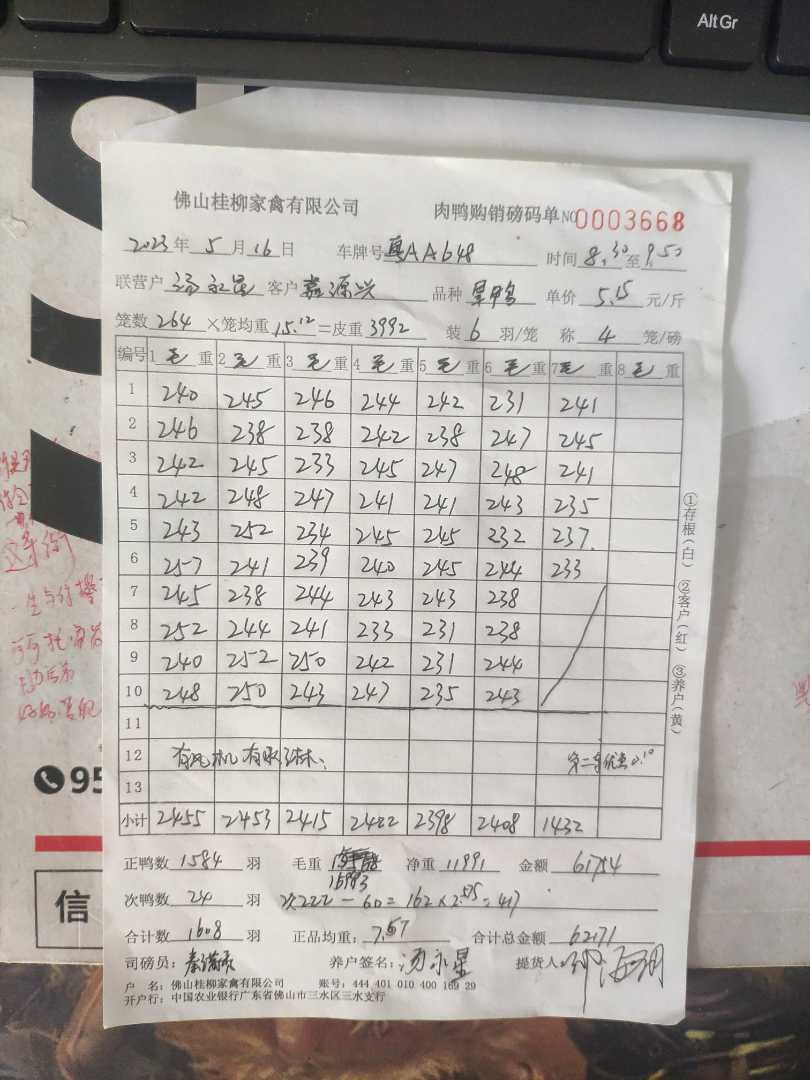 Alt Gr
佛山桂柳家禽有限公司 肉鸭购销磅码单 NO 0003668
2023年 5月16日 车牌号 粤AA648 时间 8.30至9.50
联营户 汤永星 客户 嘉源兴 品种 星鸭 单价 5.15 元/斤
笼数 264 ×笼均重 15.12 =皮重 3992 装 6 羽/笼 称 4 笼/磅
编号 1 毛 重 2 毛 重 3 毛 重 4 毛 重 5 毛 重 6 毛 重 7 毛 重 8 毛 重
1 240 245 246 244 242 231 241
2 246 238 238 242 238 247 245
3 242 245 233 245 247 248 241
4 242 248 247 241 241 243 235
5 243 252 234 245 245 232 237
6 257 241 239 240 245 244 233
7 245 238 244 243 243 238
8 252 244 241 233 231 238
9 240 252 250 242 231 244
10 248 250 243 247 235 243
11
12 有风机 有取淋
13
小计 2455 2453 2415 2422 2398 2408 1432
①存根(白) ②客户(红) ③养户(黄)
正鸭数 1584 羽 毛重 15983 净重 11991 金额 61754
次鸭数 24 羽 次222-60=162×2.575=417
合计数 1608 羽 正品均重: 7.57 合计总金额 62171
司磅员: 养户签名: 汤永星 提货人:
户 名: 佛山桂柳家禽有限公司 账号: 444 401 010 400 169 29
开户行: 中国农业银行广东省佛山市三水区三水支行
95
信